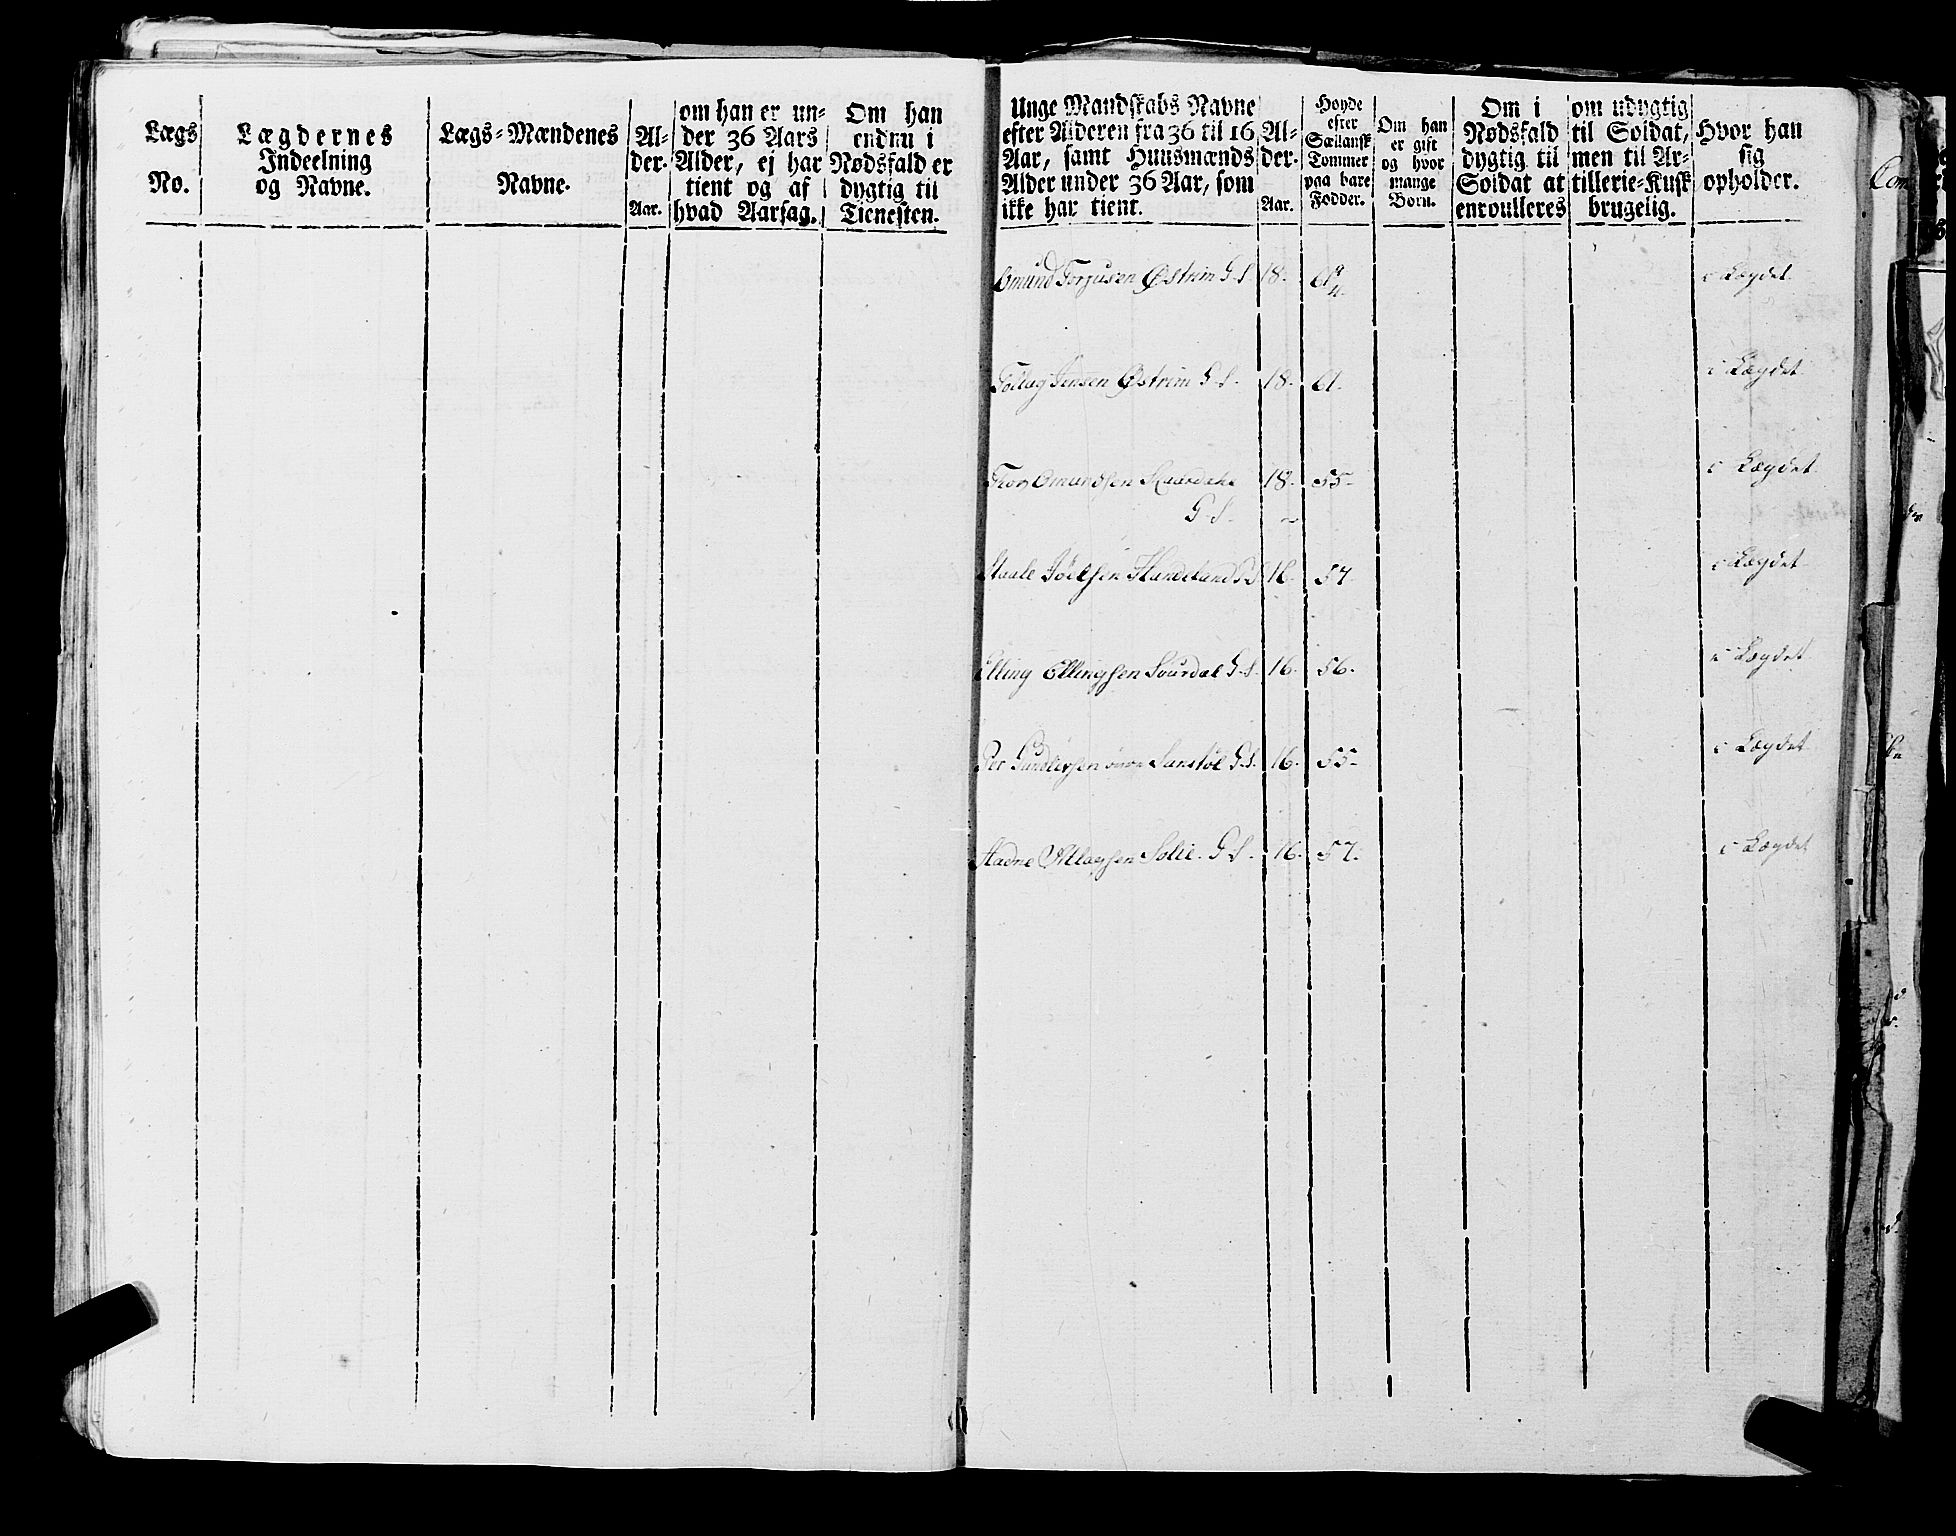 Lægs
No.
Lægdernes
Indeelning
og Navne.
Lægs-Mændenes
Navne.
Al-
der.
Aar.
om han er un-
der 36 Aars
Alder, ej har
tient og af
hvad Aarsag.
Om han
endnu i
Nødsfald er
dygtig til
Tienesten.
Unge Mandskabs Navne
efter Alderen fra 36 til 16
Aar, samt Huusmænds
Alder under 36 Aar, som
ikke har tient.
Al-
der.
Aar.
Høyde
efter
Sællansk
Tommer
paa bare
Fødder.
Om han
er gift
og hvor
mange
Børn.
Om i
Nødsfald
dygtig til
Soldat at
enroulleres
om udygtig
til Soldat,
men til Ar-
tillerie-Kusk
brugelig.
Hvor han
sig
opholder.
Omund Torjusen Østrim G.S. 18. 61 i Lægdet
Jensen Østrim G.S. 18. 61. i Lægdet
Omundsen G.S. 18. 55 i Lægdet
Staale Jöelsen Handeland G.S. 16. 57 i Lægdet
Elling Ellingsen G.S. 16. 56. i Lægdet
Per Gundersen G.S. 16. 55 i Lægdet
Aadne Solie. G.S. 16. 57. i Lægdet